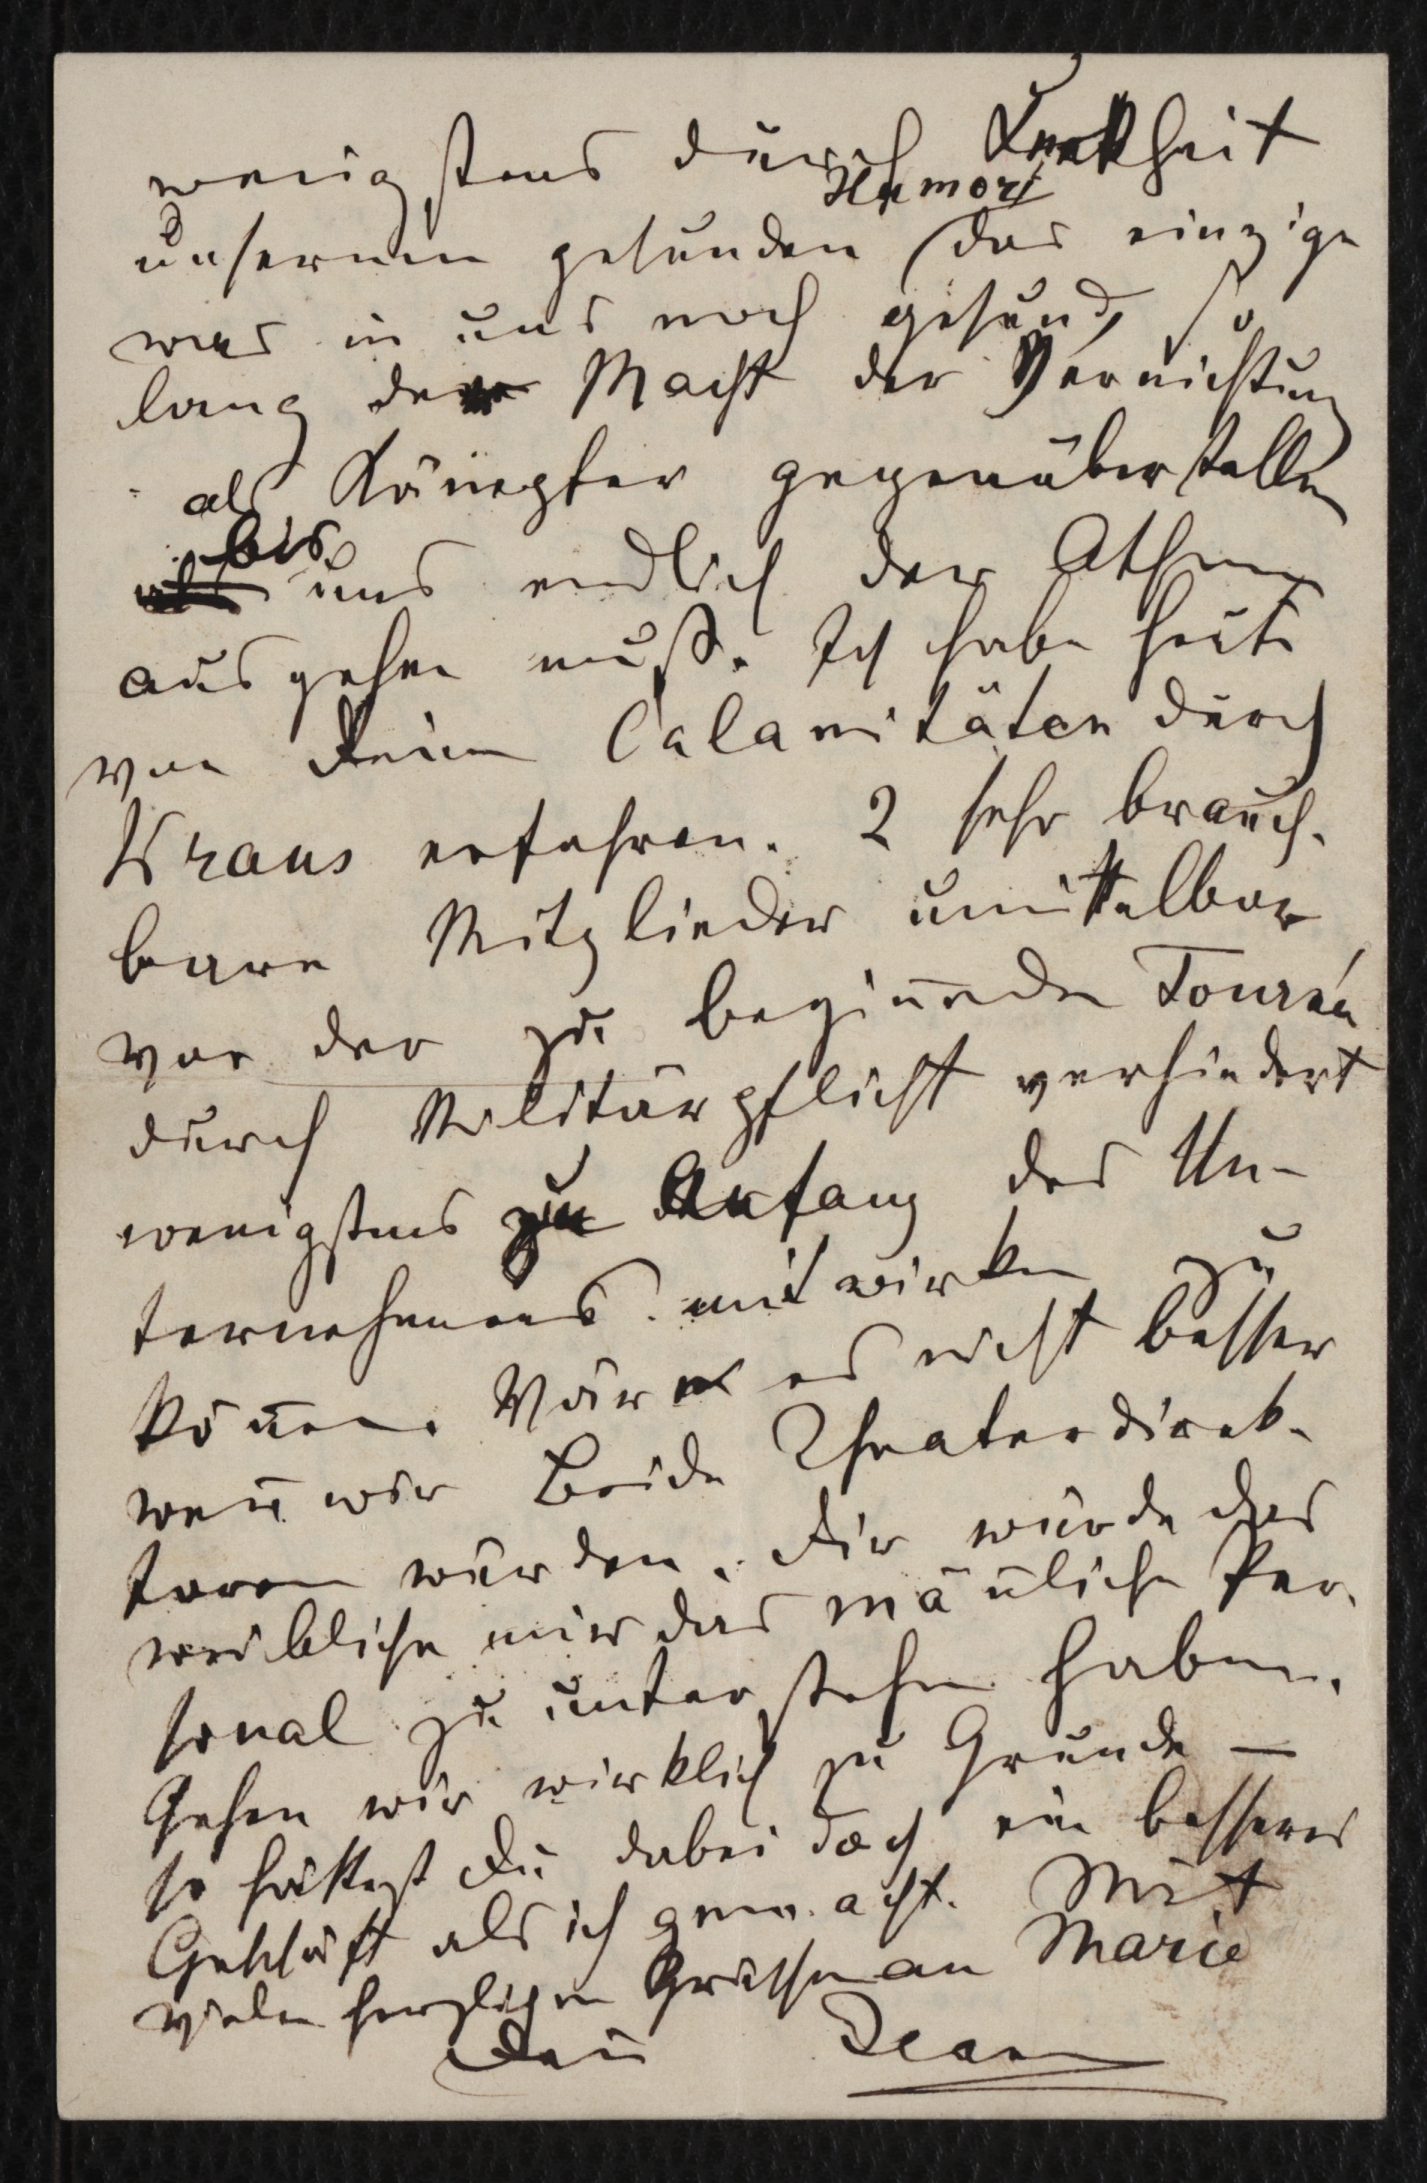 wenigstens durch Keckheit
Humor,
unseren gesunden (das einzige
was in uns noch gesund, so
lang der Macht der Vernichtung
als Kämpfer gegenüberstellen
bis
uns endlich der Athem
ausgehen muß. Ich habe heute
von Deinen Calamitäten durch
Kraus erfahren. 2 sehr brauch-
bare Mitglieder unmittelbar
vor der zu beginnenden Tournée
durch Militärpflicht verhindert
wenigstens zu Anfang des Un-
ternehmens mitwirken zu
können. Wäre es nicht besser
wenn wir Beide Theaterdirek-
toren würden. Dir würde das
weibliche mir das mänliche Per-
sonal zu unterstehen haben.
Gehen wir wirklich zu Grunde —
so hättest Du dabei doch ein besseres
Geschäft als ich gemacht. Mit
vielen herzlichen Grüssen an Marie
Dein Jean